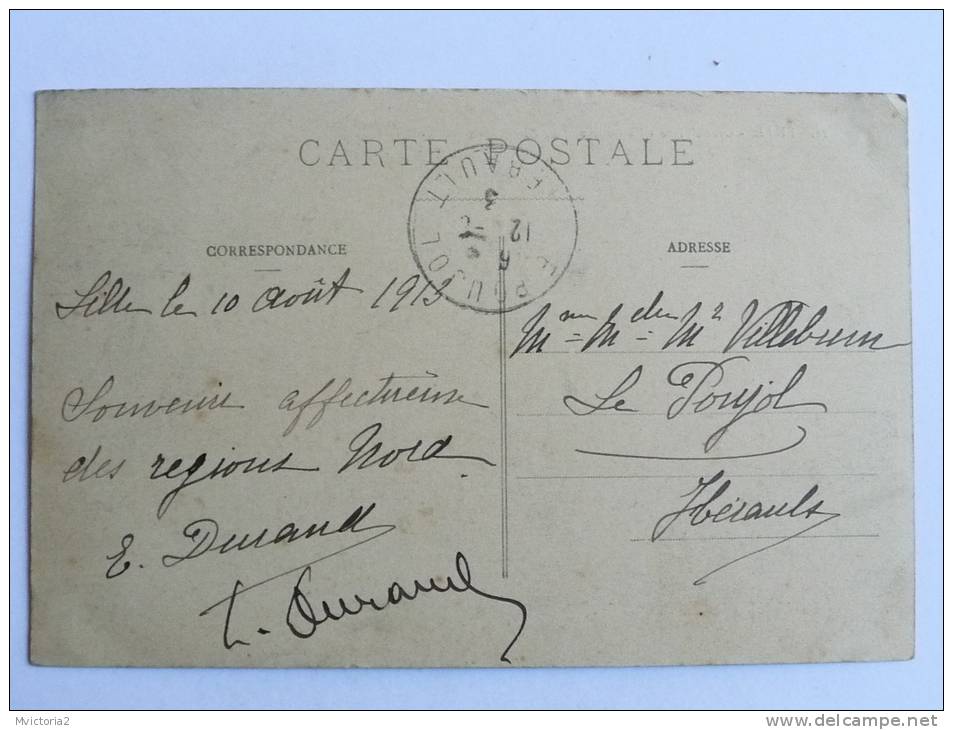 CARTE POSTALE
POUJOL HERAULT
12
3
CORRESPONDANCE
Lille le 10 août 1913
Souvenir affectueux
des regions Nord.
E. Durand
L. Durand
ADRESSE
Mme = Melle = Mr Villebrun
Le Poujol
Hérault
Mvictoria2
delcampe.net